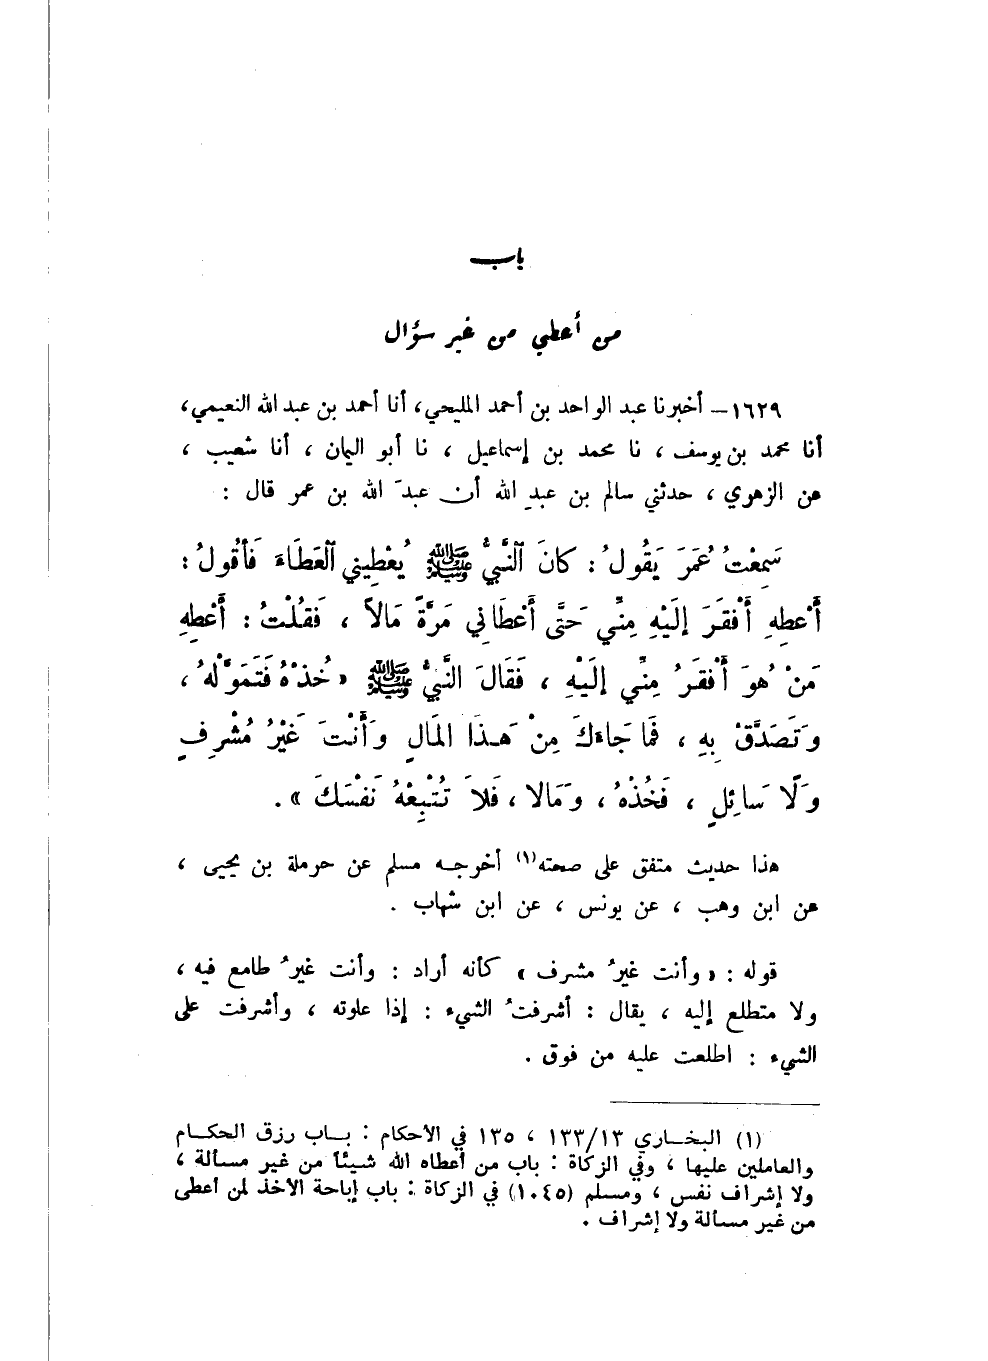 باب
من أعطي من غير سؤال
١٦٢٩ – أخبرنا عبد الواحد بن أحمد المليحي، أنا أحمد بن عبد الله النعيمي،
أنا محمد بن يوسف ، نا محمد بن إسماعيل ، نا أبو اليمان ، أنا شعيب ،
عن الزهري ، حدثني سالم بن عبدِ الله أن عبدَ الله بن عمر قال :
سَمِعْتُ عُمَرَ يَقُولُ : كانَ النَّبيُّ ﷺ يُعْطِيني العَطَاءَ فَأَقُولُ :
أَعْطِهِ أَفْقَرَ إِلَيْهِ مِنِّي حَتَّى أَعْطَاني مَرَّةً مَالاً ، فَقُلْتُ : أَعْطِهِ
مَنْ هُوَ أَفْقَرُ مِنِّي إِلَيْهِ ، فَقَالَ النَّبيُّ ﷺ « خُذْهُ فَتَمَوَّلْهُ ،
وَتَصَدَّقْ بِهِ ، فَمَا جَاءَكَ مِنْ هَـذَا المَالِ وَأَنْتَ غَيْرُ مُشْرِفٍ
وَلَا سَائِلٍ ، فَخُذْهُ ، وَمَالا ، فَلاَ تُتْبِعْهُ نَفْسَكَ » .
هذا حديث متفق على صحته(١) أخرجه مسلم عن حرملة بن يحيى ،
عن ابن وهب ، عن يونس ، عن ابن شهاب .
قوله : « وأنت غيرُ مشرف » كأنه أراد : وأنت غيرُ طامع فيه ،
ولا متطلع إليه ، يقال : أشرفتُ الشيء : إذا علوته ، وأشرفت على
الشيء : اطلعت عليه من فوق .
(١) البخــاري ١٣/١٣٣ ، ١٣٥ في الأحكام : بــاب رزق الحكـام
والعاملين عليها ، وفي الزكاة : باب من أعطاه الله شيئاً من غير مسألة ،
ولا إشراف نفس ، ومسلم (١٠٤٥) في الزكاة : باب إباحة الأخذ لمن أعطى
من غير مسألة ولا إشراف .